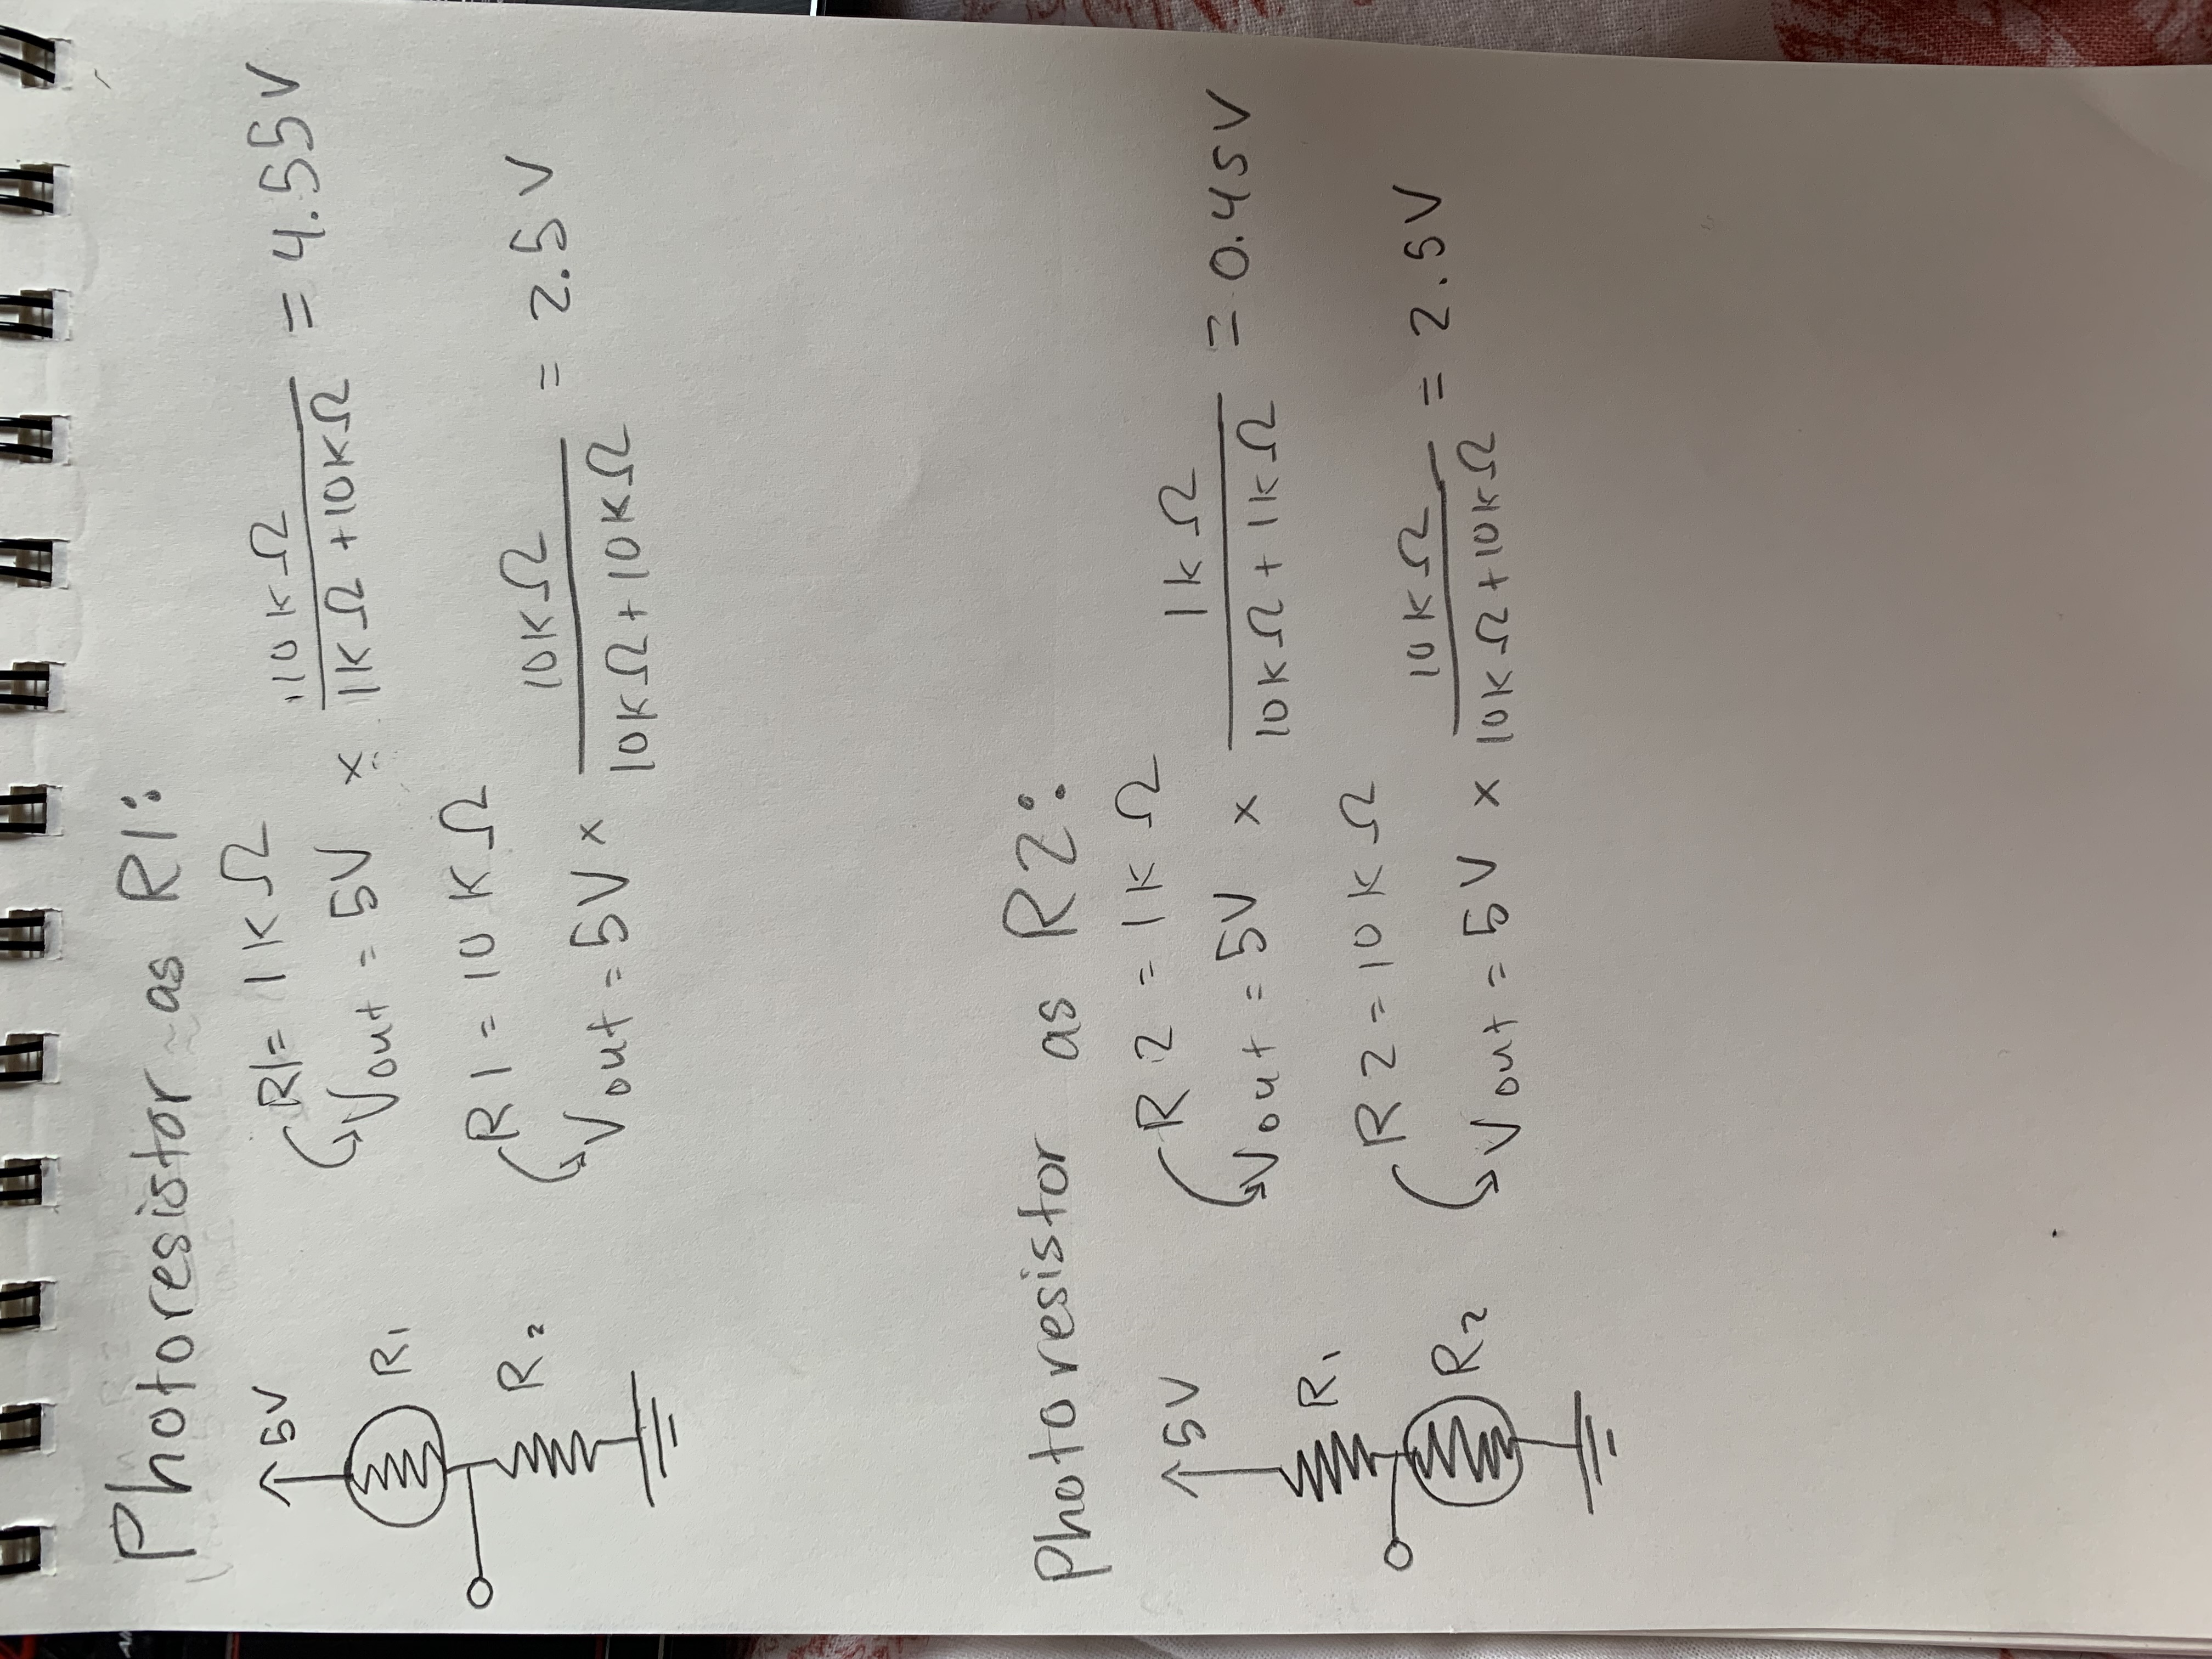 Photoresistor as R1:
5V
R1
R2
R1= 1KΩ
Vout = 5V × 10KΩ / 1KΩ +10KΩ = 4.55V
R1 = 10KΩ
Vout = 5V × 10KΩ / 10KΩ + 10KΩ = 2.5V
Photoresistor as R2:
5V
R1
R2
R2 = 1KΩ
Vout = 5V × 1KΩ / 10KΩ + 1KΩ = 0.45V
R2 = 10KΩ
Vout = 5V × 10KΩ / 10KΩ +10KΩ = 2.5V